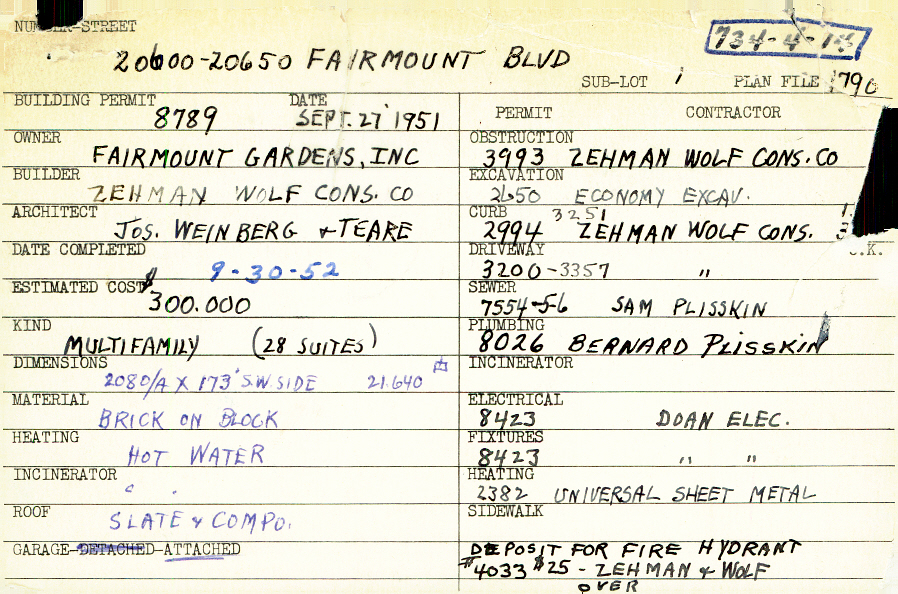 NUMBER-STREET
734-4-14
20600-20650 FAIRMOUNT BLVD
SUB-LOT 1 PLAN FILE 1790
BUILDING PERMIT DATE
8789 SEPT. 27 1951
OWNER
FAIRMOUNT GARDENS, INC
BUILDER
ZEHMAN WOLF CONS. CO
ARCHITECT
JOS. WEINBERG & TEARE
DATE COMPLETED
9-30-52
ESTIMATED COST
$300.000
KIND
MULTIFAMILY (28 SUITES)
DIMENSIONS
208O/A X 173' S.W. SIDE 21.640
MATERIAL
BRICK ON BLOCK
HEATING
HOT WATER
INCINERATOR
ROOF
SLATE & COMPO.
GARAGE-DETACHED-ATTACHED
PERMIT CONTRACTOR
OBSTRUCTION
3993 ZEHMAN WOLF CONS. CO
EXCAVATION
2650 ECONOMY EXCAV.
CURB 3251
2994 ZEHMAN WOLF CONS.
DRIVEWAY O.K.
3200-3357 "
SEWER
7554-56 SAM PLISSKIN
PLUMBING
8026 BERNARD PLISSKIN
INCINERATOR
ELECTRICAL
8423 DOAN ELEC.
FIXTURES
8423 " "
HEATING
2382 UNIVERSAL SHEET METAL
SIDEWALK
DEPOSIT FOR FIRE HYDRANT
#4033 $25 - ZEHMAN & WOLF
OVER